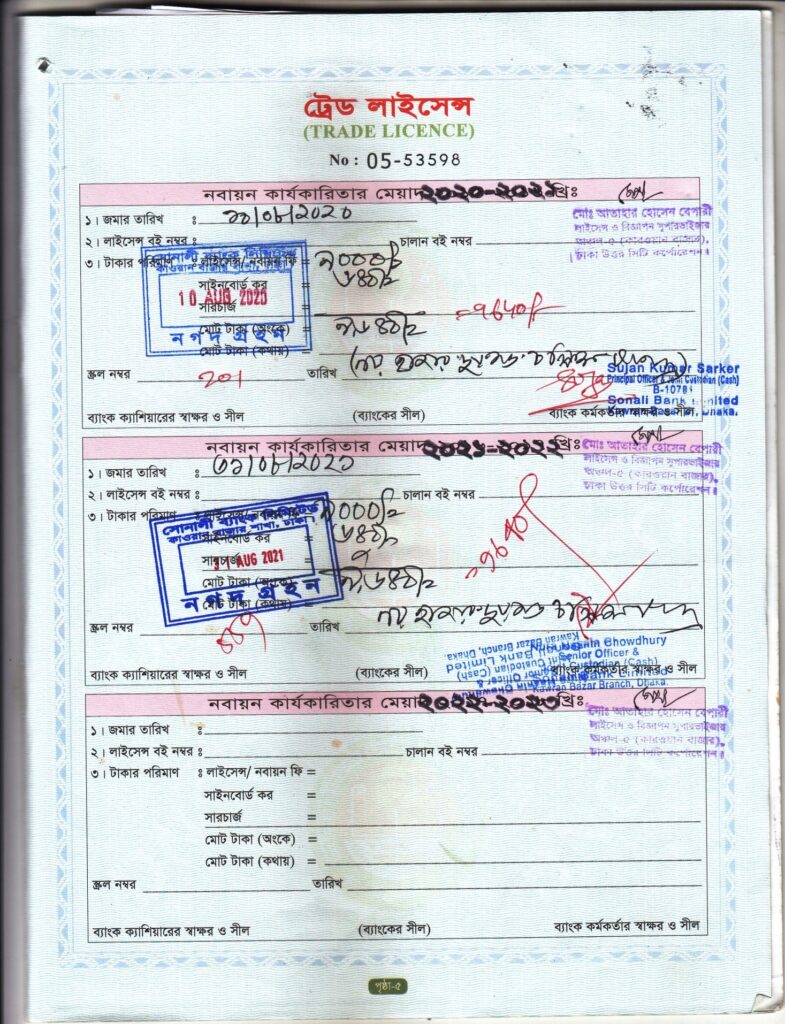 ট্রেড লাইসেন্স
(TRADE LICENCE)
No : 05-53598
নবায়ন কার্যকারিতার মেয়াদ ২০২০-২০২১ খ্রিঃ
১। জমার তারিখ ঃ ১০/০৮/২০২০
মোঃ আতাহার হোসেন বেপারী
লাইসেন্স ও বিজ্ঞাপন সুপারভাইজার
অঞ্চল-৫ (কারওয়ান বাজার),
ঢাকা উত্তর সিটি কর্পোরেশন।
২। লাইসেন্স বই নম্বর ঃ চালান বই নম্বর
৩। টাকার পরিমাণ ঃ লাইসেন্স/ নবায়ন ফি = ৯০০০/=
সাইনবোর্ড কর ৬৪০/=
সারচার্জ
মোট টাকা (অংকে) ৯,৬৪০/= =9640/-
মোট টাকা (কথায়)
সোনালী ব্যাংক লিমিটেড
কাওরান বাজার শাখা, ঢাকা।
10 AUG 2020
নগদ গ্রহন
স্ক্রল নম্বর 201 তারিখ
Sujan Kumar Sarker
Principal Officer & Joint Custodian (Cash)
B-10781
Sonali Bank Limited
Kawran Bazar Br., Dhaka.
ব্যাংক ক্যাশিয়ারের স্বাক্ষর ও সীল (ব্যাংকের সীল) ব্যাংক কর্মকর্তার স্বাক্ষর ও সীল
নবায়ন কার্যকারিতার মেয়াদ ২০২১-২০২২ খ্রিঃ
১। জমার তারিখ ঃ ৩১/০৮/২০২১
মোঃ আতাহার হোসেন বেপারী
লাইসেন্স ও বিজ্ঞাপন সুপারভাইজার
অঞ্চল-৫ (কারওয়ান বাজার),
ঢাকা উত্তর সিটি কর্পোরেশন।
২। লাইসেন্স বই নম্বর ঃ চালান বই নম্বর
৩। টাকার পরিমাণ ঃ লাইসেন্স/ নবায়ন ফি = ৯০০০/=
সাইনবোর্ড কর ৬৪০/=
সারচার্জ
মোট টাকা (অংকে) ৯,৬৪০/= =9640/-
মোট টাকা (কথায়)
সোনালী ব্যাংক লিমিটেড
কাওরান বাজার শাখা, ঢাকা।
31 AUG 2021
নগদ গ্রহন
স্ক্রল নম্বর তারিখ
Chowdhury
Senior Officer &
Joint Custodian (Cash)
Bank Limited
Kawran Bazar Branch, Dhaka.
ব্যাংক ক্যাশিয়ারের স্বাক্ষর ও সীল (ব্যাংকের সীল) ব্যাংক কর্মকর্তার স্বাক্ষর ও সীল
নবায়ন কার্যকারিতার মেয়াদ ২০২২-২০২৩ খ্রিঃ
১। জমার তারিখ ঃ
মোঃ আতাহার হোসেন বেপারী
লাইসেন্স ও বিজ্ঞাপন সুপারভাইজার
অঞ্চল-৫ (কারওয়ান বাজার),
ঢাকা উত্তর সিটি কর্পোরেশন।
২। লাইসেন্স বই নম্বর ঃ চালান বই নম্বর
৩। টাকার পরিমাণ ঃ লাইসেন্স/ নবায়ন ফি =
সাইনবোর্ড কর =
সারচার্জ =
মোট টাকা (অংকে) =
মোট টাকা (কথায়) =
স্ক্রল নম্বর তারিখ
ব্যাংক ক্যাশিয়ারের স্বাক্ষর ও সীল (ব্যাংকের সীল) ব্যাংক কর্মকর্তার স্বাক্ষর ও সীল
পৃষ্ঠা-৫